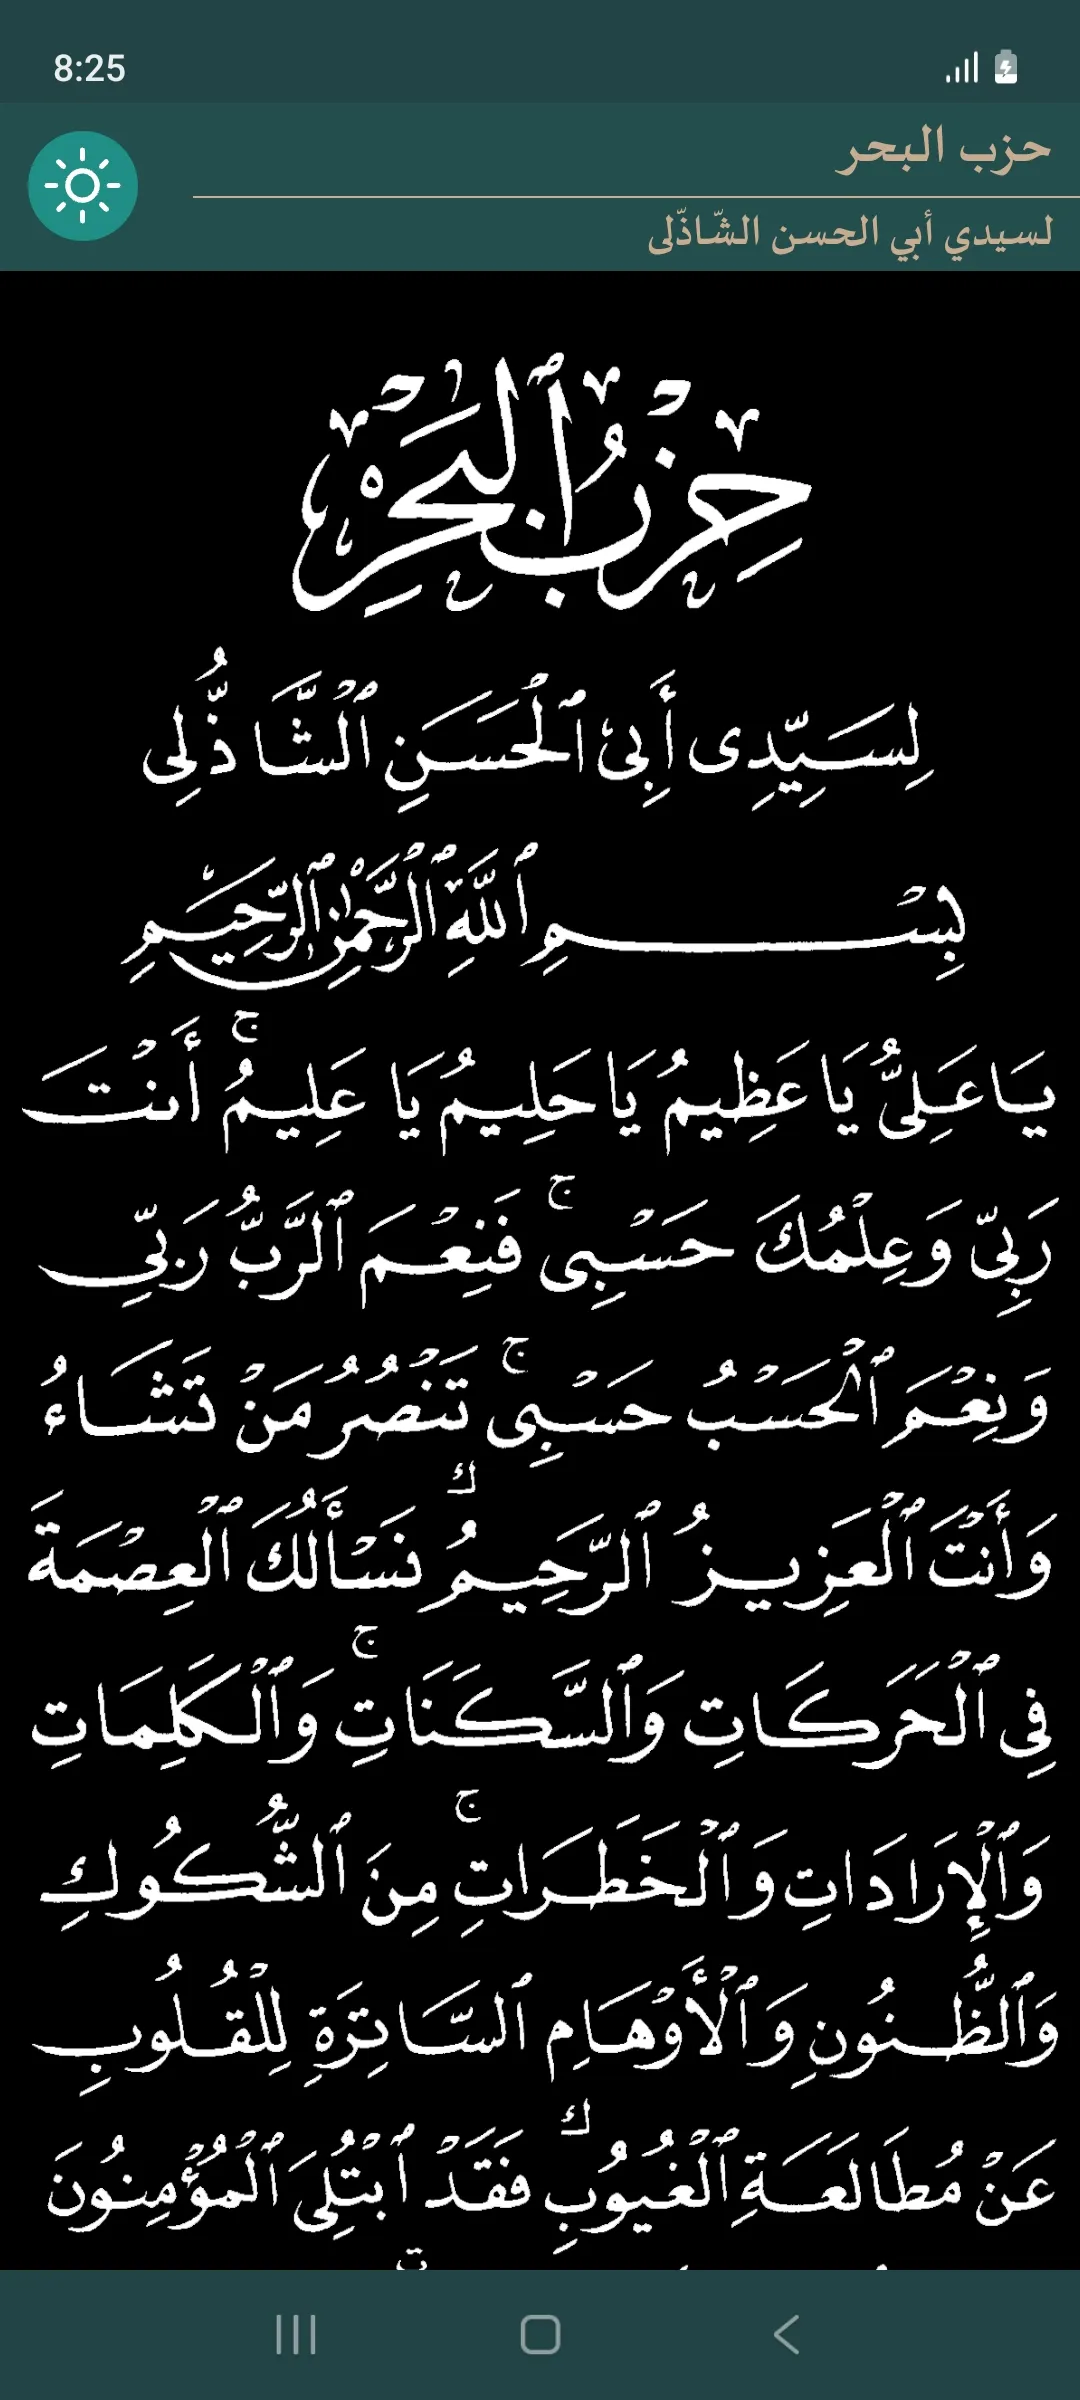 8:25
حزب البحر
لسيدي أبي الحسن الشّاذّلى
حِزْبُ ٱلْبَحْرِ
لِسَيِّدِى أَبِىْ ٱلْحَسَنِ ٱلْشَّاذُّلِى
بِسْمِ ٱللَّهِ ٱلْرَّحْمَٰنِ ٱلْرَّحِيْمِ
يَاعَلِىُّ يَا عَظِيمُ يَا حَلِيمُ يَا عَلِيمُ ۚ أَنْتَ
رَبِىّ وَعِلْمُكَ حَسْبِى ۚ فَنِعْمَ ٱلرَّبُّ رَبِّى
وَنِعْمَ ٱلْحَسْبُ حَسْبِى ۚ تَنْصُرُ مَنْ تَشَاءُ
وَأَنْتَ ٱلْعَزِيزُ ٱلرَّحِيمُ ك نَسْأَلُكَ ٱلْعِصْمَةَ
فِى ٱلْحَرَكَاتِ وَٱلسَّكَنَاتِ ۚ وَٱلْكَلِمَاتِ
وَٱلْإِرَادَاتِ وَٱلْخَطَرَاتِ ۚ مِنَ ٱلشُّكُوكِ
وَٱلظُّنُونِ وَٱلْأَوْهَامِ ٱلسَّاتِرَةِ لِلْقُلُوبِ
عَنْ مُطَالَعَةِ ٱلْغُيُوبِ ك فَقَدْ ٱبْتُلِىَ ٱلْمُؤْمِنُونَ